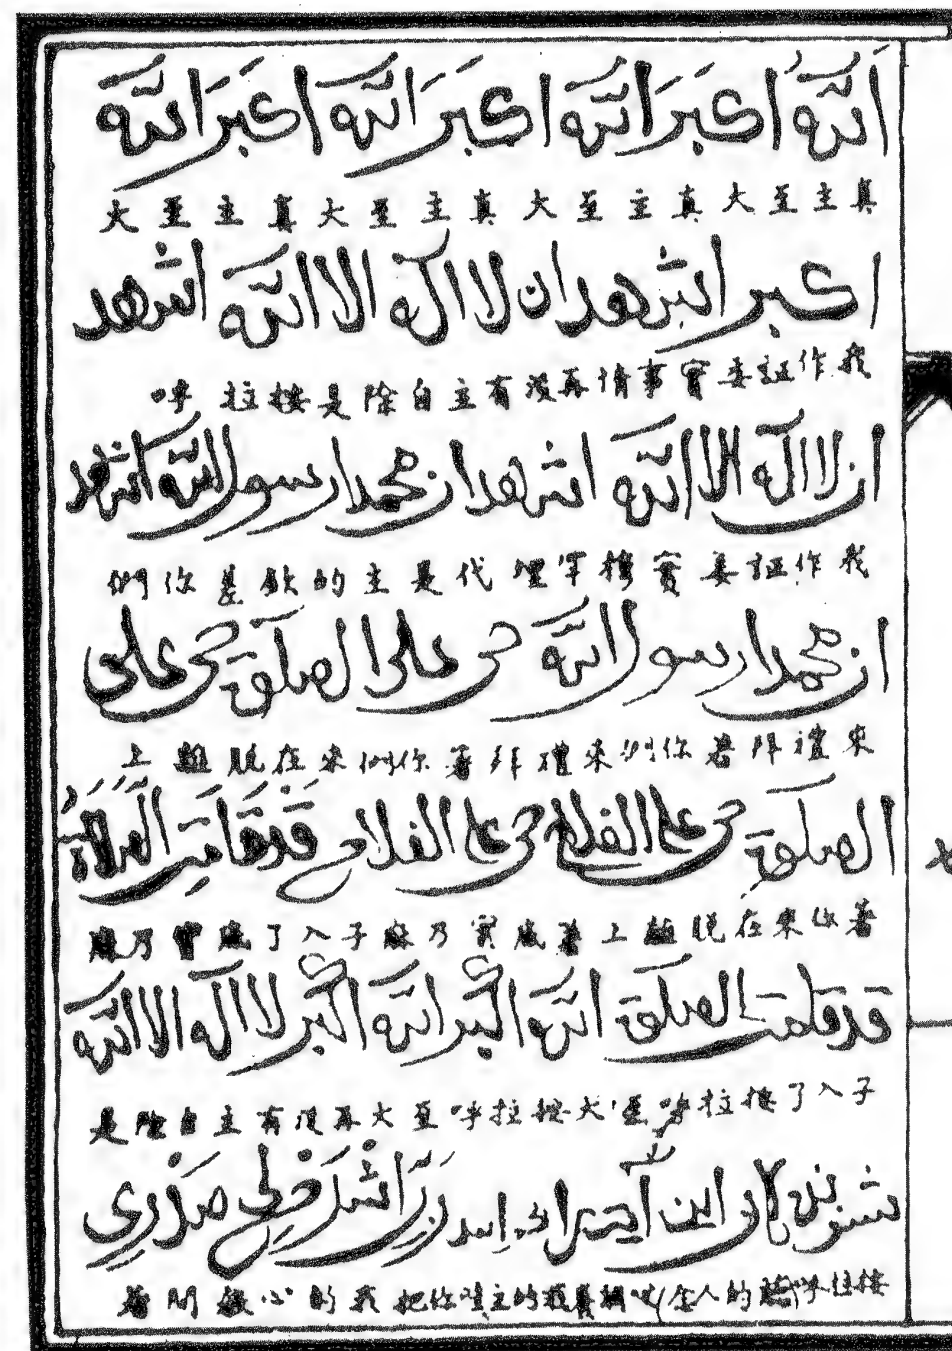 الله اكبر الله اكبر الله اكبر الله
真主至大真主至大真主至大真主至大
اكبر اشهد ان لا اله الا الله اشهد
我作証委實事情再沒有主自除是按拉呼
ان لا اله الا الله اشهد ان محمدا رسول الله اشهد
我作証委實穆罕埋代是主的欽差你們
ان محمدا رسول الله حى على الصلوة حى على
來禮拜着你們來禮拜着你們來在脫離上
الصلوة حى على الفلاح حى على الفلاح قَدْ قَامَتِ الصَّلَاةُ
着你來在脫離上着乃麻子入了乃麻
قد قامت الصلوة الله اكبر الله اكبر لا اله الا الله
子入了按拉呼至大按拉呼至大再沒有主自除是
رَبِّ اشْرَحْ لِي صَدْرِي
按拉呼的人主你把我的心開着